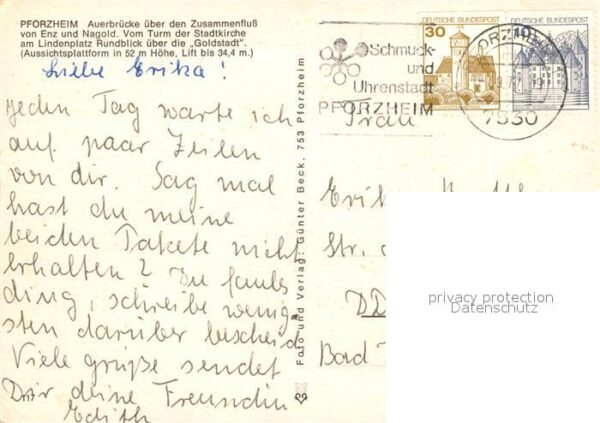 PFORZHEIM Auerbrücke über den Zusammenfluß
von Enz und Nagold. Vom Turm der Stadtkirche
am Lindenplatz Rundblick über die „Goldstadt".
(Aussichtsplattform in 52 m Höhe, Lift bis 34,4 m.)
Liebe Erika!
jeden Tag warte ich
auf paar Zeilen
von dir. Sag mal
hast du meine
beiden Pakete nicht
erhalten? Du faules
ding, schreibe wenig-
sten darüber bescheid
Viele grüße sendet
Dir deine Freundin
Edith
Foto und Verlag: Günter Beck, 753 Pforzheim
Schmuck-
und
Uhrenstadt
PFORZHEIM
30
DEUTSCHE BUNDESPOST
7530
Frau
Str.
DD
Bad
privacy protection
Datenschutz